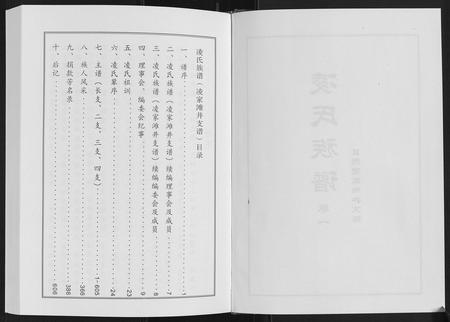 凌氏族谱（凌家滩井支谱）目录
一、谱序……1
二、凌氏族谱（凌家滩井支谱）续编理事会及成员……7
三、凌氏族谱（凌家滩井支谱）续编编委会及成员……8
四、理事会、编委会纪事……9
五、凌氏祖训……23
六、凌氏辈序……24
七、主谱（长支、二支、三支、四支）……1-605
八、族人风采……366
九、捐款芳名录……386
十、后记……606
凌氏族谱
卷一